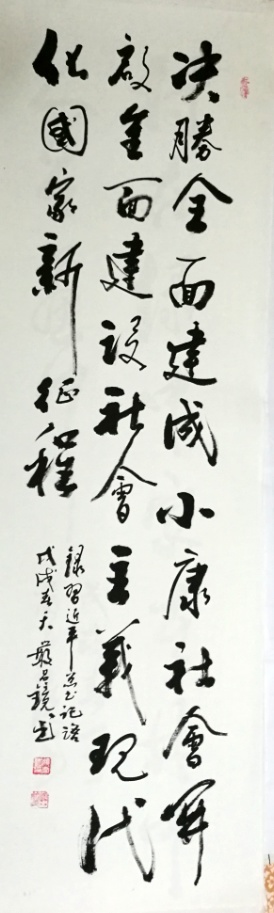 决勝全面建成小康社會開
啟全面建設社會主義現代
化國家新征程
錄習近平总书记语
戊戌春天